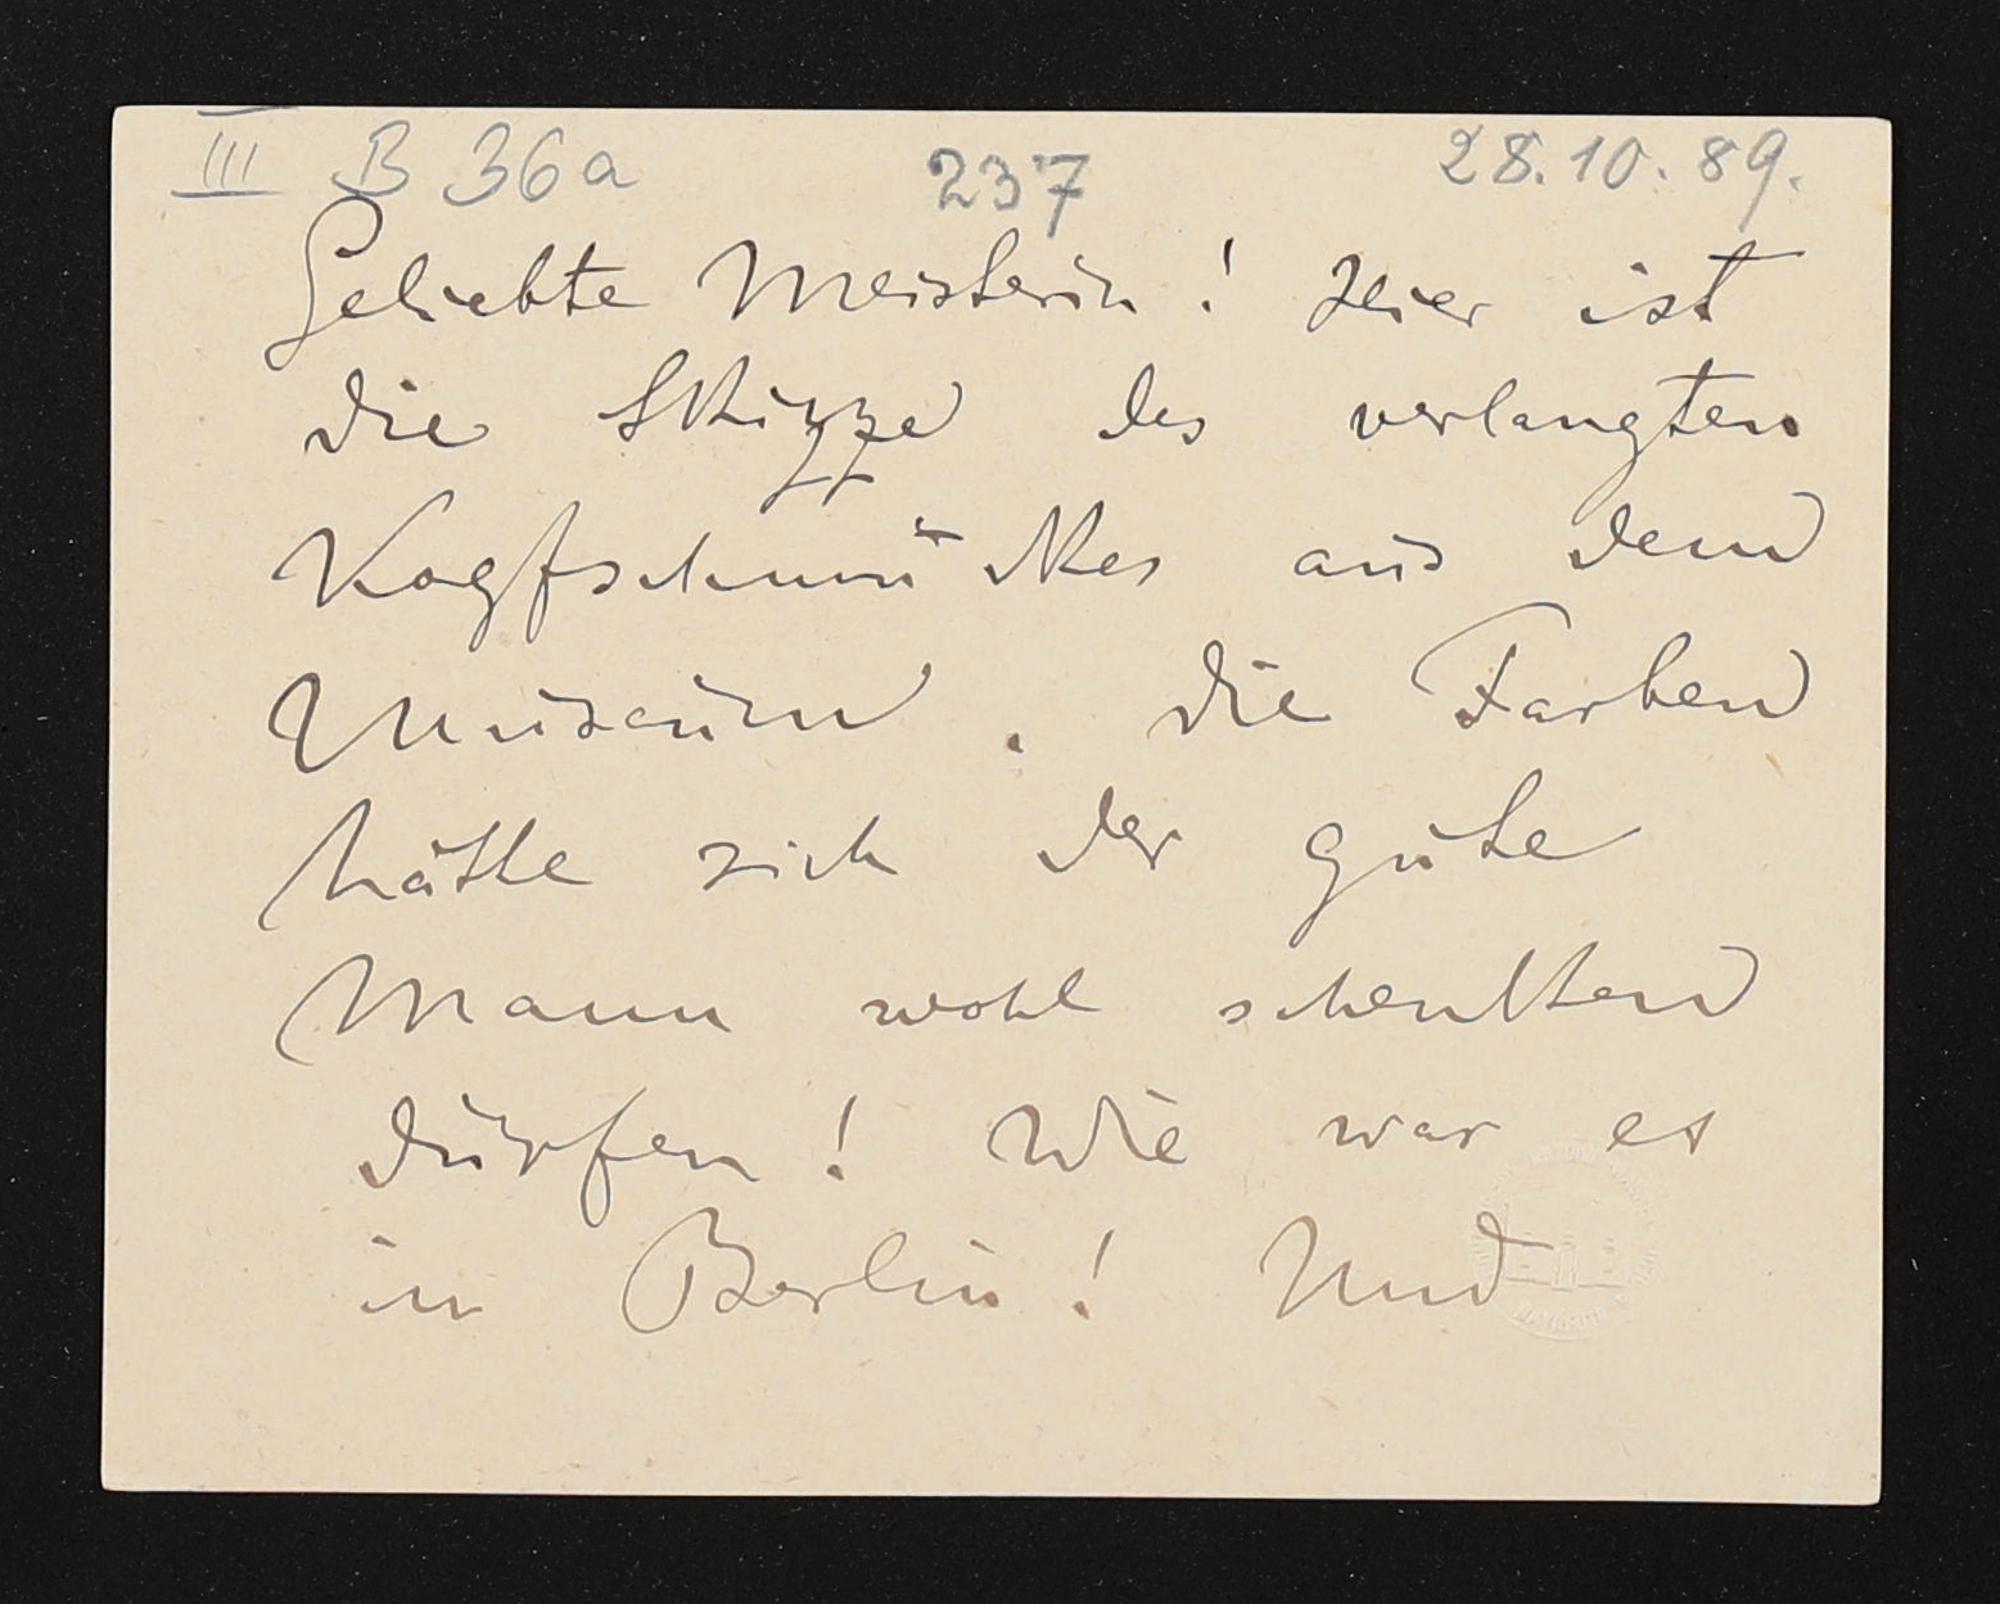 III B 36a 237 28.10.89.
Geliebte Meisterin! Hier ist
die Skizze des verlangten
Kopfschmuckes aus dem
Museum. Die Farben
hätte sich der gute
Mann wohl schenken
dürfen! Wie war es
in Berlin! Und